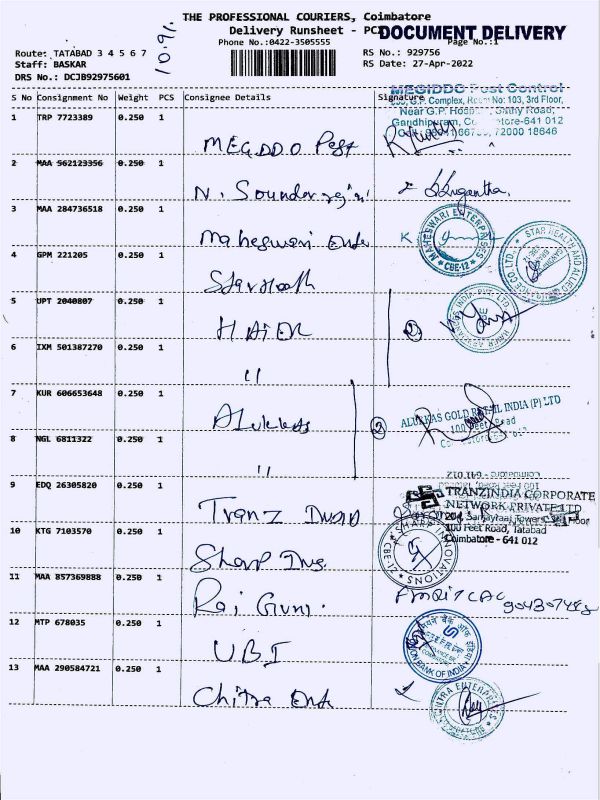 THE PROFESSIONAL COURIERS, Coimbatore
Delivery Runsheet - PCD
DOCUMENT DELIVERY
Phone No.:0422-3505555
Page No.:1
Route: TATABAD 3 4 5 6 7
RS No.: 929756
Staff: BASKAR
RS Date: 27-Apr-2022
DRS No.: DCJB92975601
10.91.
S No Consignment No Weight PCS Consignee Details Signature
MEGIDDO Pest Control
G.P. Complex, Room No: 103, 3rd Floor,
Near G.P. Hospital, Sathy Road,
Gandhipuram, Coimbatore-641 012
72000 18646
1 TRP 7723389 0.250 1 MEGDDO Pest
2 MAA 562123356 0.250 1 N. Sounder
3 MAA 284736518 0.250 1 Maheswari Ente
MAHESWARI ENTERPRISES
* CBE-12 *
4 GPM 221205 0.250 1 Star Health
STAR HEALTH AND ALLIED INSURANCE CO. LTD.
5 UPT 2040807 0.250 1 HAIER
2
6 IXM 501387270 0.250 1 "
7 KUR 606653648 0.250 1 Alukkas
2
ALUKKAS GOLD RETAIL INDIA (P) LTD
100 Feet Road
8 NGL 6811322 0.250 1 "
9 EDQ 26305820 0.250 1 Tranz India
TRANZINDIA CORPORATE
NETWORK PRIVATE LTD
Floor
100 Feet Road, Tatabad
Coimbatore - 641 012
10 KTG 7103570 0.250 1 Sharp Inno
SHARP INNOVATIONS
CBE-12
11 MAA 857369888 0.250 1 Raj Guru.
12 MTP 678035 0.250 1 UBI
UNION BANK OF INDIA
13 MAA 290584721 0.250 1 Chitra Ente
CHITRA ENTERPRISES